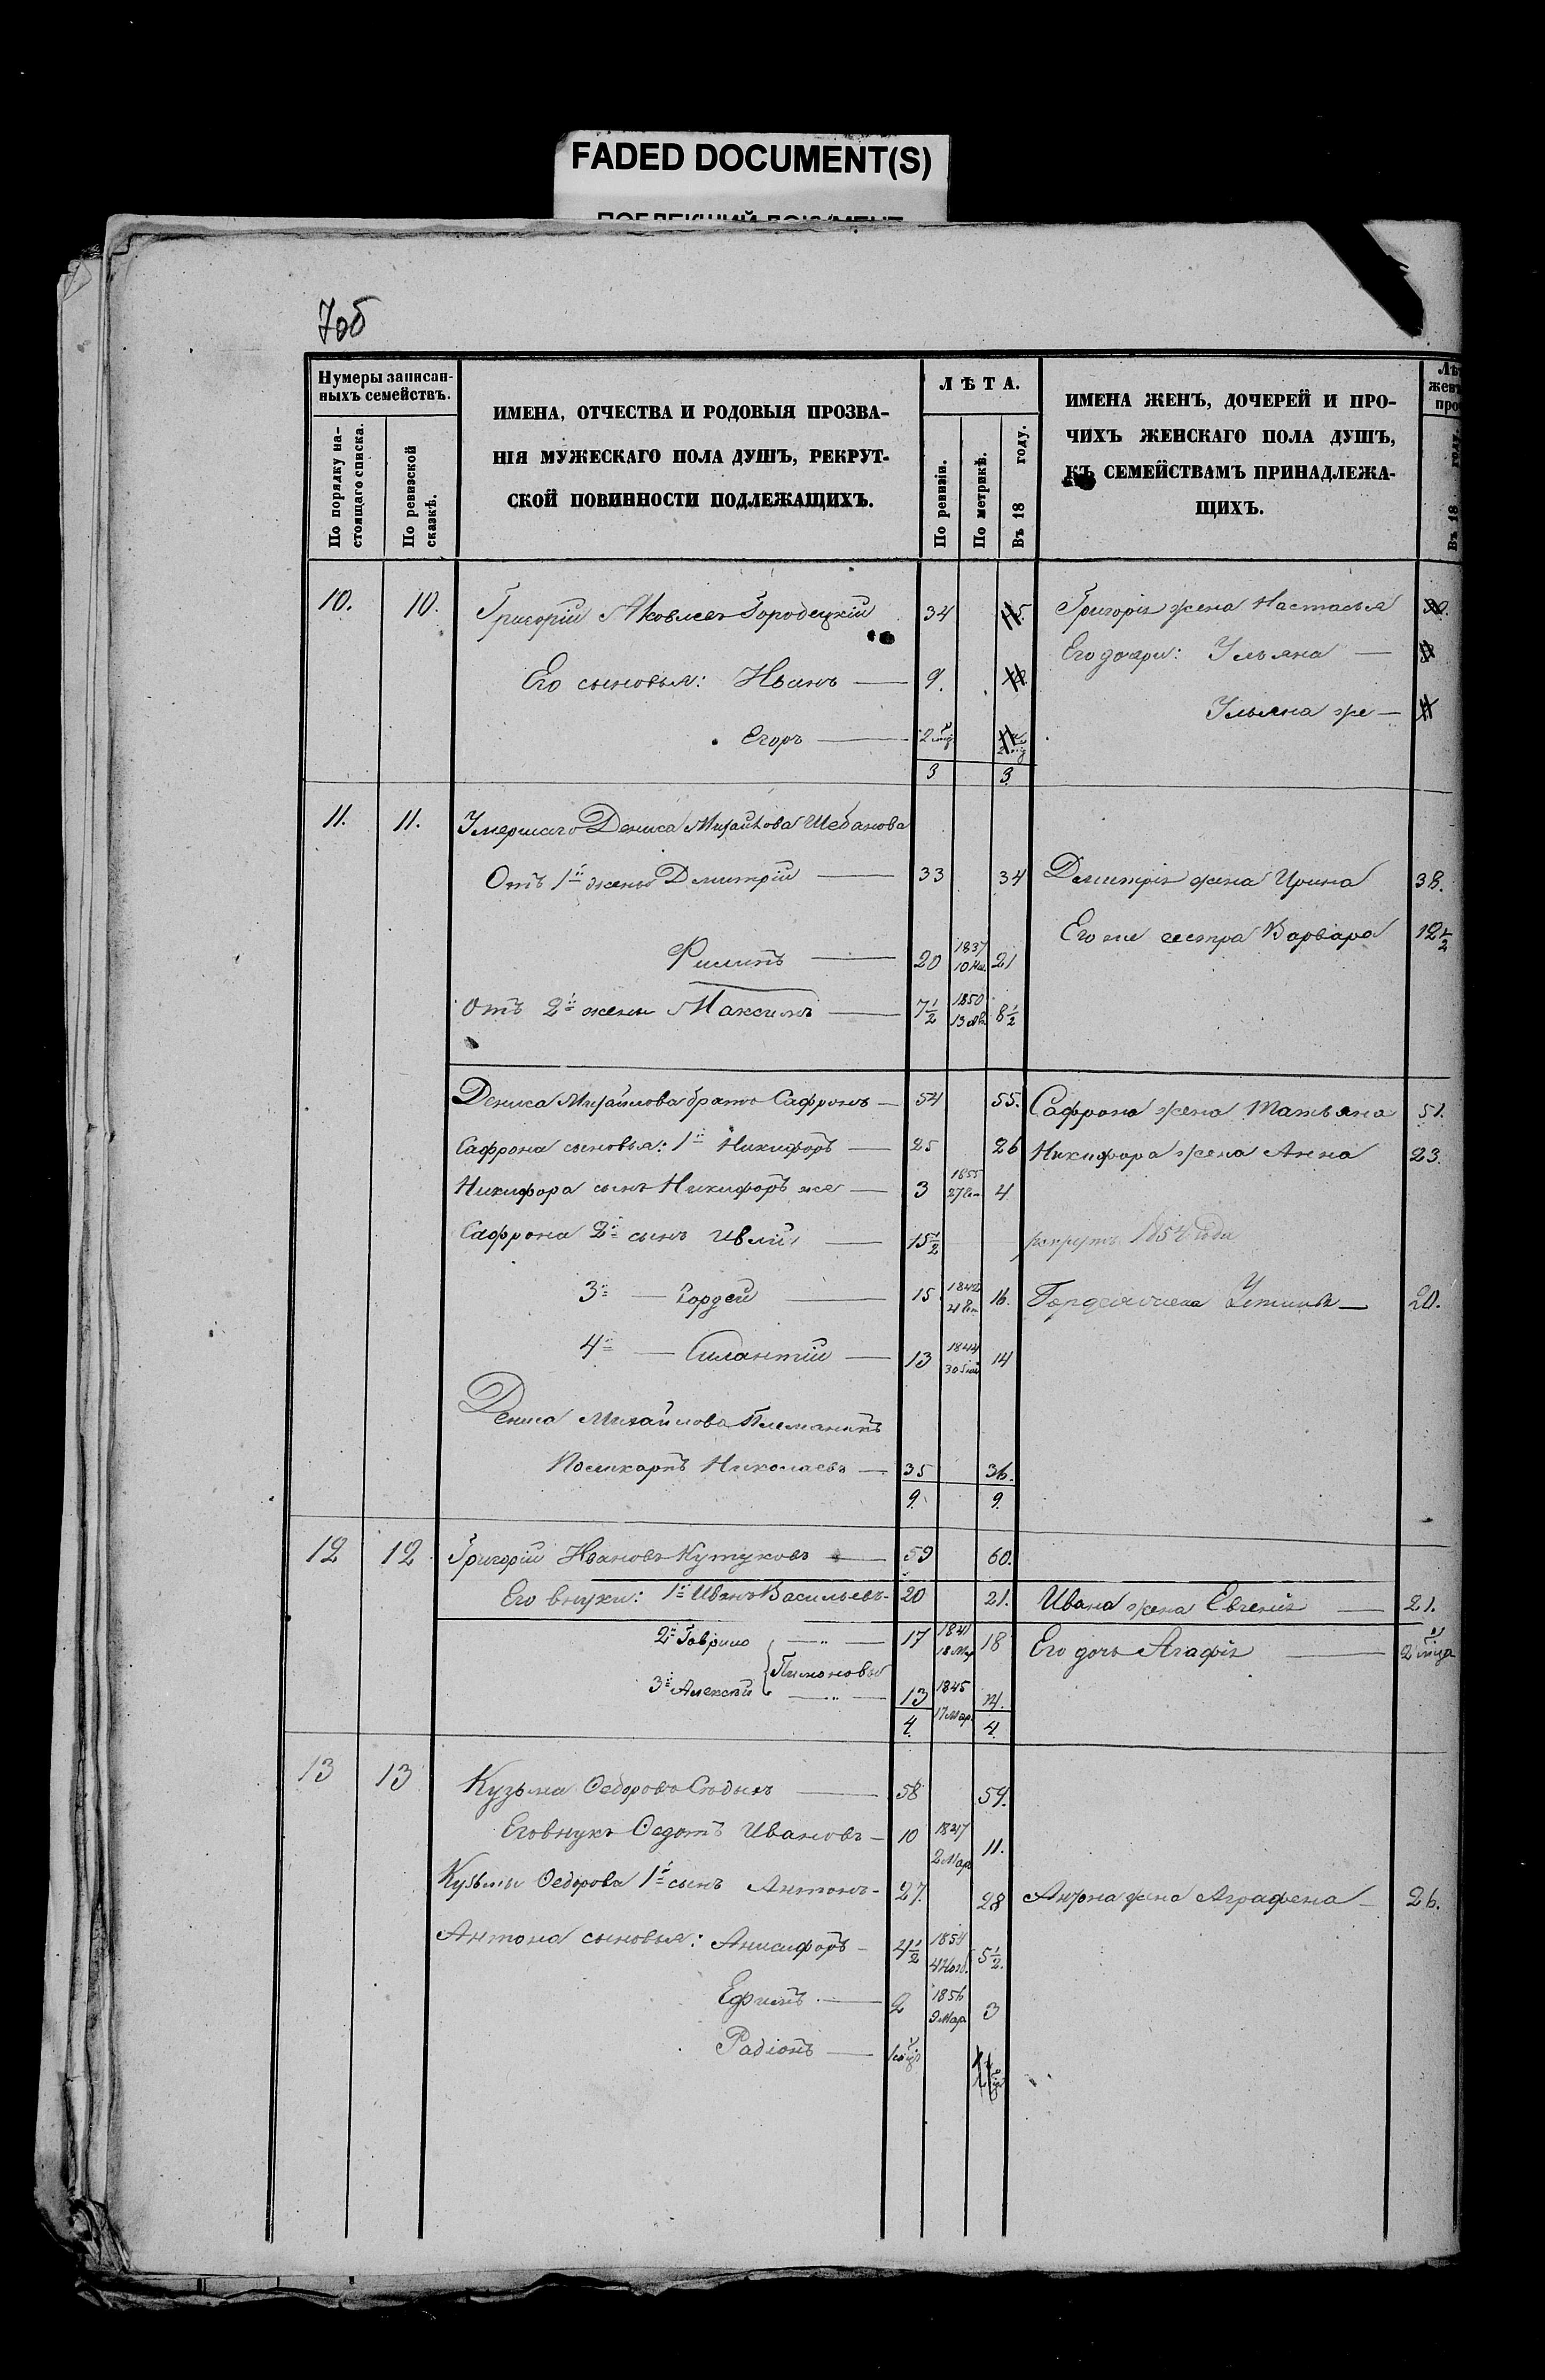 FADED DOCUMENT(S)
7об
Нумеры записан-
ныхъ семействъ.
По порядку на-
стоящаго списка.
По ревизской
сказкѣ.
ИМЕНА, ОТЧЕСТВА И РОДОВЫЯ ПРОЗВА-
НІЯ МУЖЕСКАГО ПОЛА ДУШЪ, РЕКРУТ-
СКОЙ ПОВИННОСТИ ПОДЛЕЖАЩИХЪ.
ЛѢТА.
По ревизіи.
По метрикѣ.
Въ 18 году.
ИМЕНА ЖЕНЪ, ДОЧЕРЕЙ И ПРО-
ЧИХЪ ЖЕНСКАГО ПОЛА ДУШЪ,
КЪ СЕМЕЙСТВАМЪ ПРИНАДЛЕЖА-
ЩИХЪ.
Въ 18 году.
10. 10. Григорій Яковлевъ Городецкій 34 Григорія жена Настасья
Его дочери: Ульяна —
Его сыновья: Иванъ — 9.
Ульяна же —
Егоръ —
3 3
11. 11. Умершаго Дениса Михайлова Шебанова
Отъ 1й жены Дмитрій — 33 34 Дмитрія жена Ирина 38.
Его же сестра Варвара 12½
Филипъ — 20 1837 21
Отъ 2й жены Максимъ — 7½ 1850 8½
Дениса Михайлова братъ Сафронъ — 54 55. Сафрона жена Татьяна 51.
Сафрона сыновья: 1й Никифоръ — 25 26 Никифора жена Анна 23.
Никифора сынъ Никифоръ же — 3 1855 4
Сафрона 2й сынъ — 15½ рекрутъ 1854 года
3й — Гордей — 15 16. Гордея жена Устинья — 20.
4й — Силантій — 13 1844 14
Дениса Михайлова Племяникъ
Поликарпъ Николаевъ — 35 36.
9. 9.
12 12 Григорій Ивановъ Кутуковъ — 59 60.
Его внуки: 1й Иванъ Васильевъ - 20 21. Ивана жена Евгенія — 21.
2й Гаврило — " — 17 18 Его дочь Агафія — 2 мѣца
3й Алексѣй — " — 13 1845 14.
17 Мар.
4. 4.
13 13 Кузьма Ѳедоровъ — 58 59.
Его внукъ Ѳедотъ Ивановъ — 10 1847 11.
2 Мар
Кузьмы Ѳедорова 1й сынъ Антонъ - 27. 28 Антона жена Аграфена — 26.
Антона сыновья: Анисифоръ — 4½ 1854 5½.
4 Нояб.
Ефимъ — 2 1856 3
9 Мар
Радіонъ —